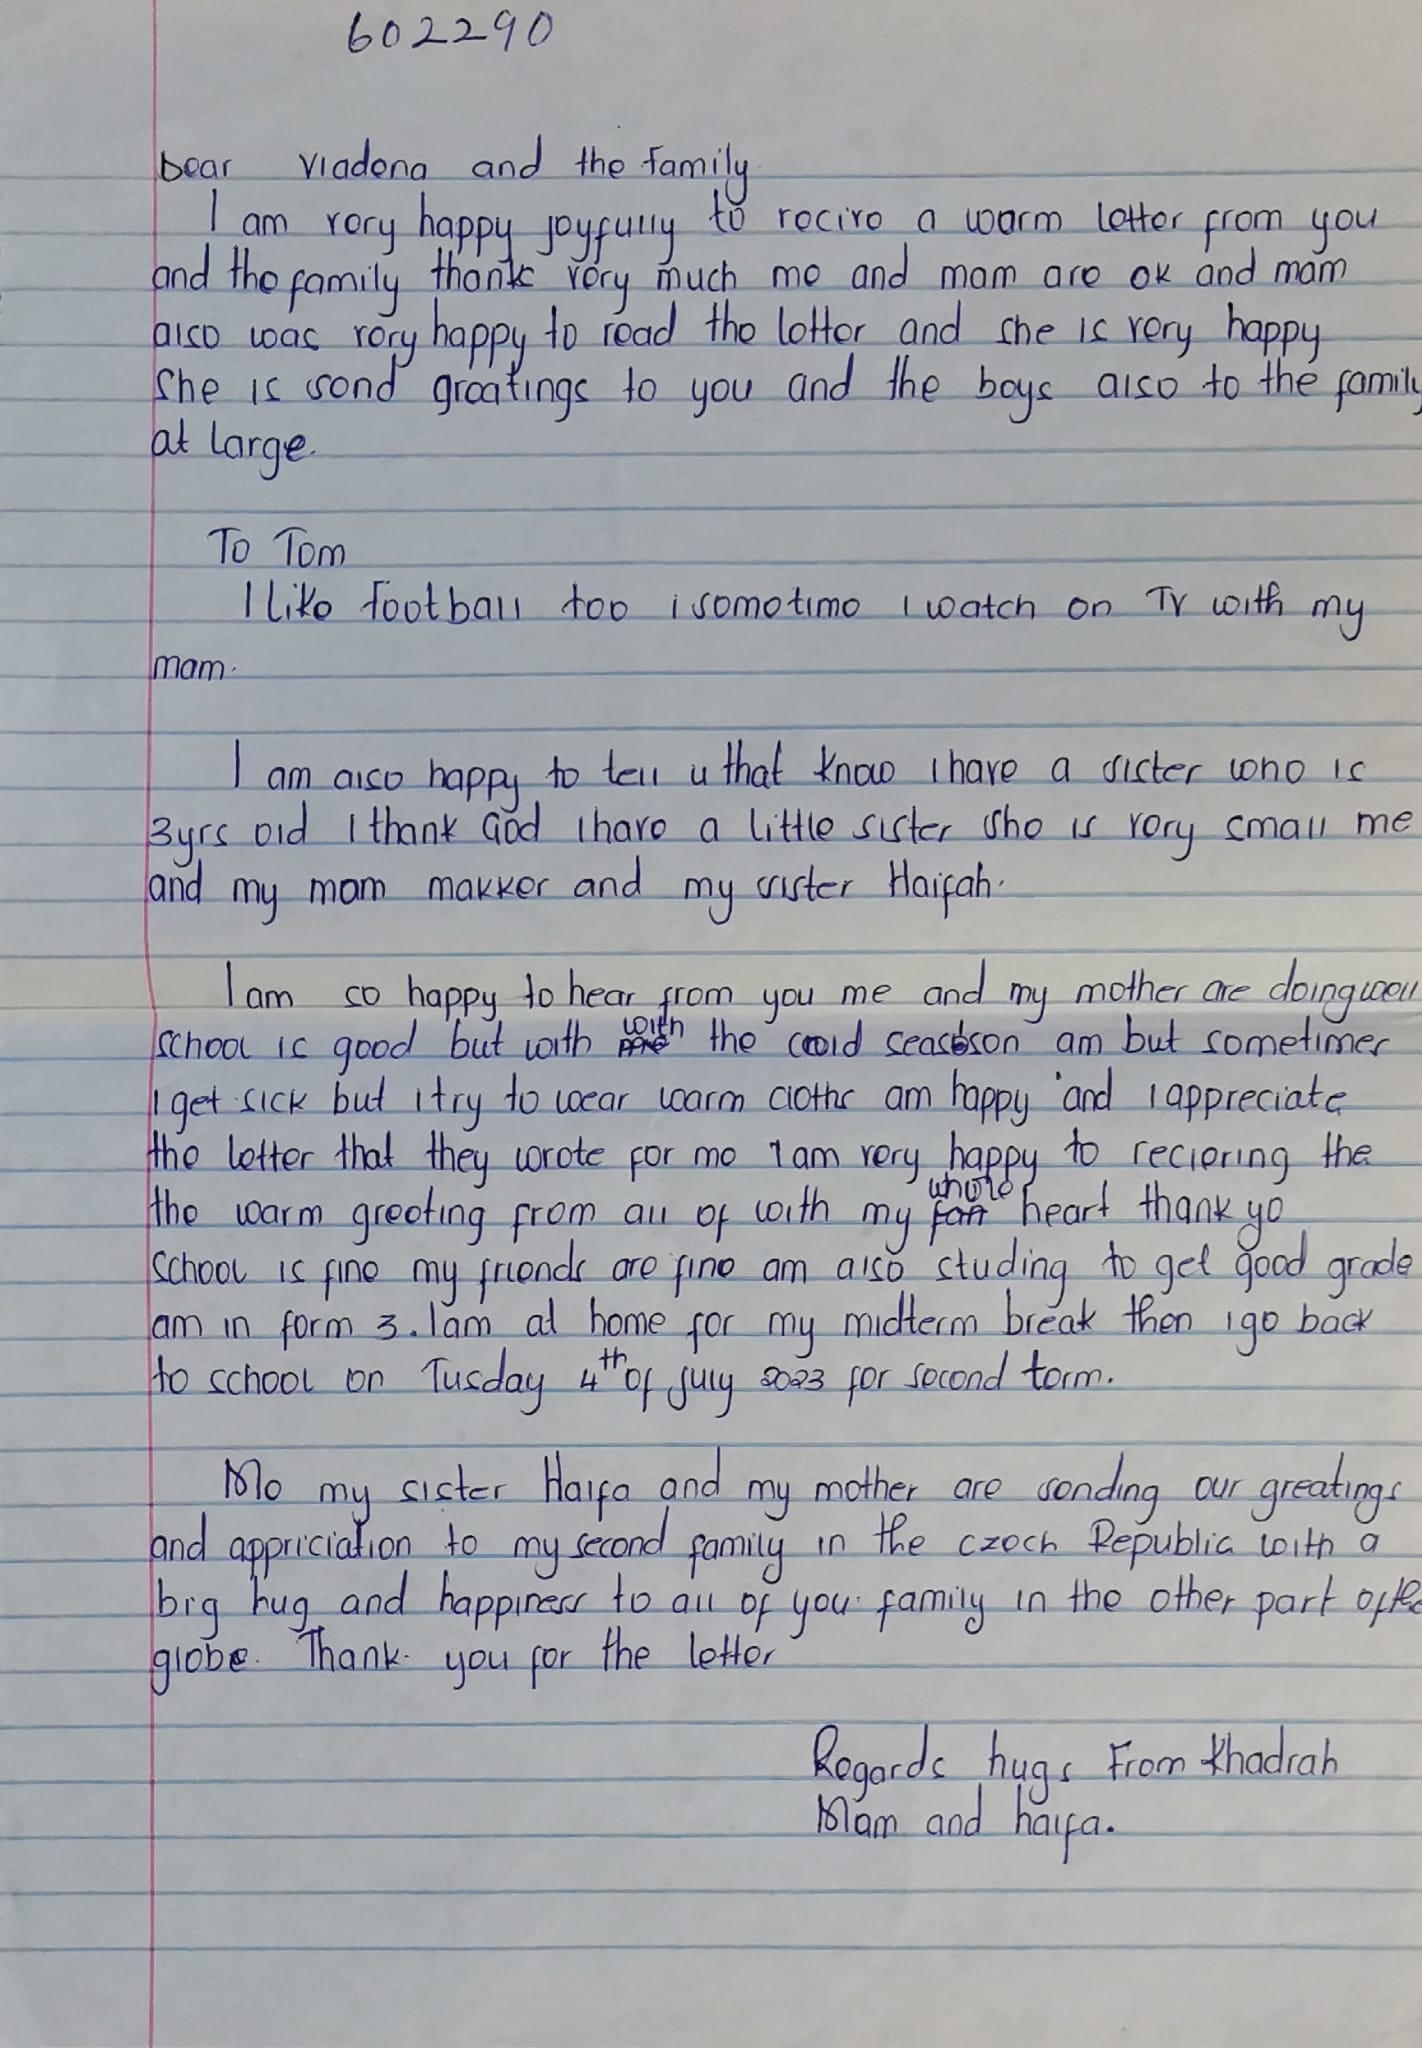 602290
Dear Vladena and the family
I am very happy joyfully to recive a warm letter from you
and the family thank very much me and mam are ok and mam
also was very happy to read the letter and she is very happy
She is send greatings to you and the boys also to the family
at large.
To Tom
I like football too i sometime i watch on TV with my
mam.
I am also happy to tell u that know i have a sister who is
3yrs old I thank God i have a little sister she is very small me
and my mam makker and my sister Haifah.
I am so happy to hear from you me and my mother are doing well
school is good but with with the coold season am but sometimes
I get sick but i try to wear warm cloths am happy and i appreciate
the letter that they wrote for me I am very happy to reciering the
the warm greeting from all of with my whole heart thank yo
School is fine my friends are fine am also studing to get good grade
am in form 3. I am at home for my midterm break then i go back
to school on Tusday 4th of July 2023 for second term.
Me my sister Haifa and my mother are sending our greatings
and appriciation to my second family in the czech Republic with a
big hug and happiness to all of you family in the other part of the
globe. Thank you for the letter
Regards hugs From Khadrah
Mam and haifa.